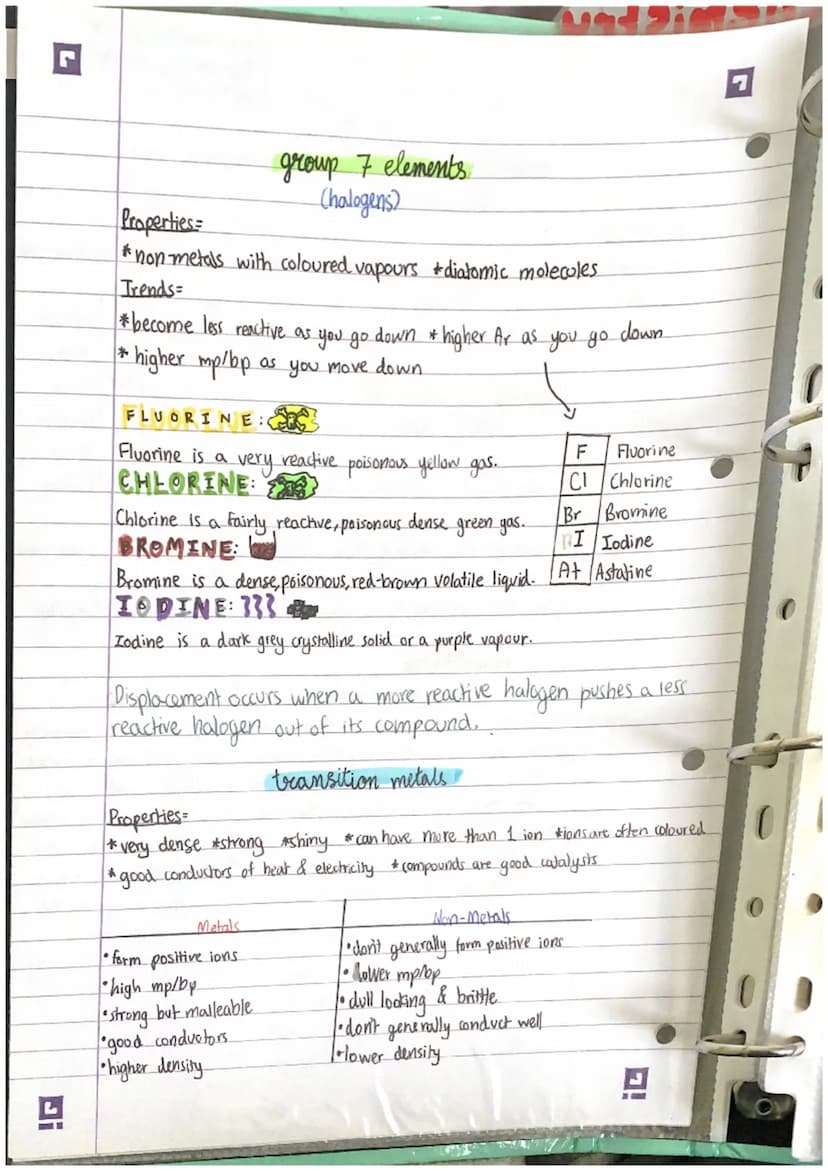 group 7 elements
(halogens)
Properties=
*non-metals with coloured vapours *diatomic molecules
Trends=
*become less reactive as you go down *higher Ar as you go down
* higher mp/bp as you move down
FLUORINE:
Fluorine is a very reactive poisonous yellow gas.
CHLORINE:
Chlorine is a fairly reactive, poisonous dense green gas.
BROMINE:
Bromine is a dense, poisonous, red-brown volatile liquid.
IODINE:
Iodine is a dark grey crystalline solid or a purple vapour.
F Fluorine
Cl Chlorine
Br Bromine
I Iodine
At Astatine
Displacement occurs when a more reactive halogen pushes a less
reactive halogen out of its compound.
transition metals
Properties=
*very dense *strong *shiny *can have more than 1 ion *ions are often coloured
*good conductors of heat & electricity *compounds are good catalysts
Metals
•form positive ions
•high mp/bp
•strong but malleable
•good conductors
•higher density
Non-Metals
•don't generally form positive ions
•lower mp/bp
•dull looking & brittle
•don't generally conduct well
•lower density